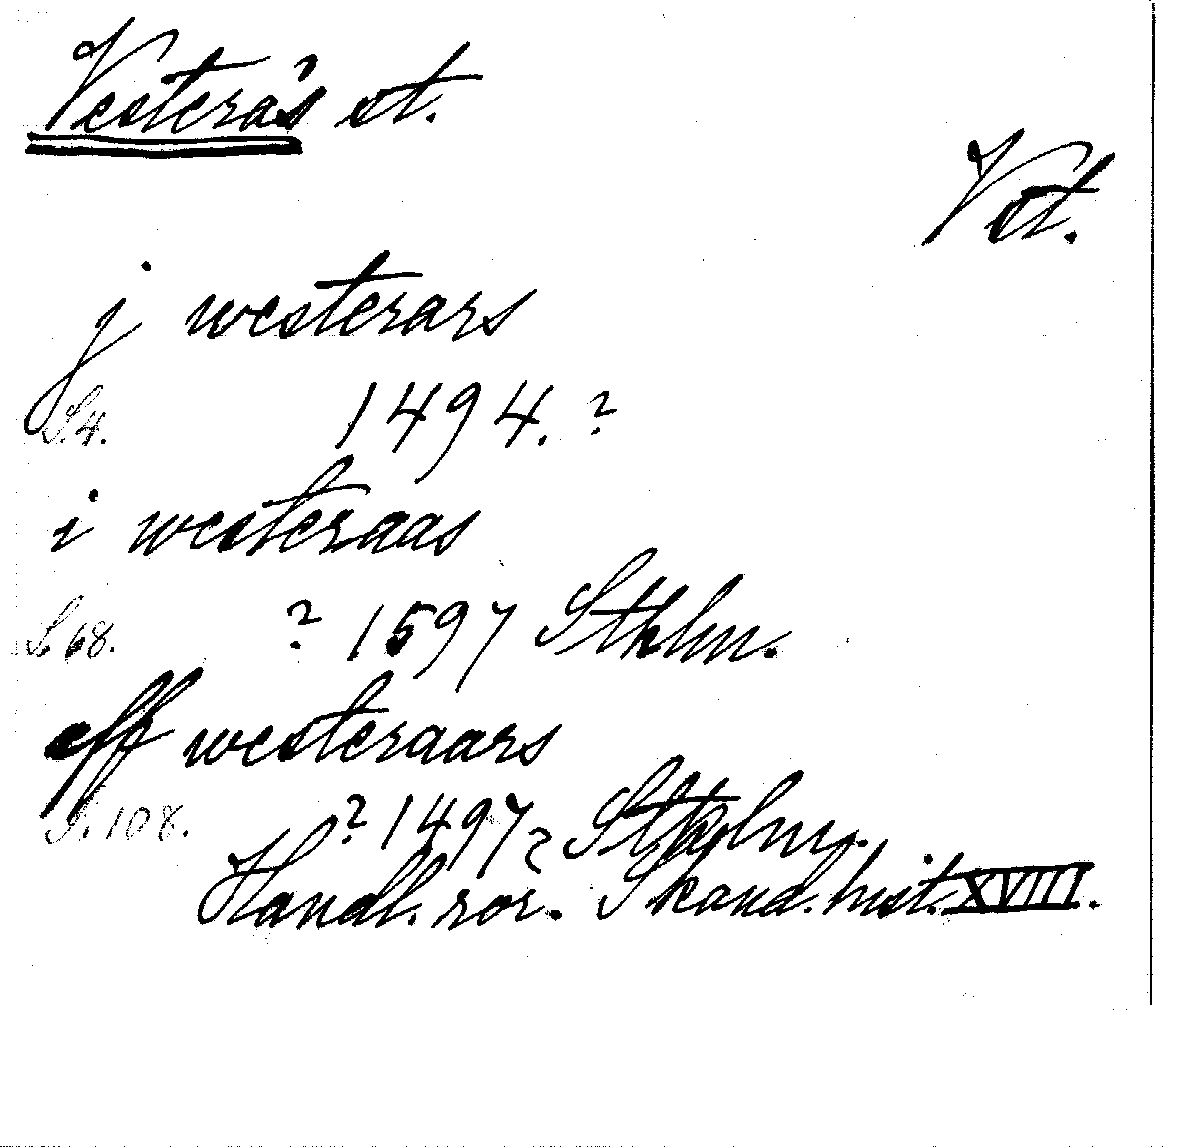 Vesterås st.
Vst.
j westerars
S. 4. 1494. ?
i westeraas
S. 68. ? 1597 Sthlm.
aff westeraars
S. 108. ? 1497 ? Sthlm.
Handl. rör. Skand. hist. XVIII.